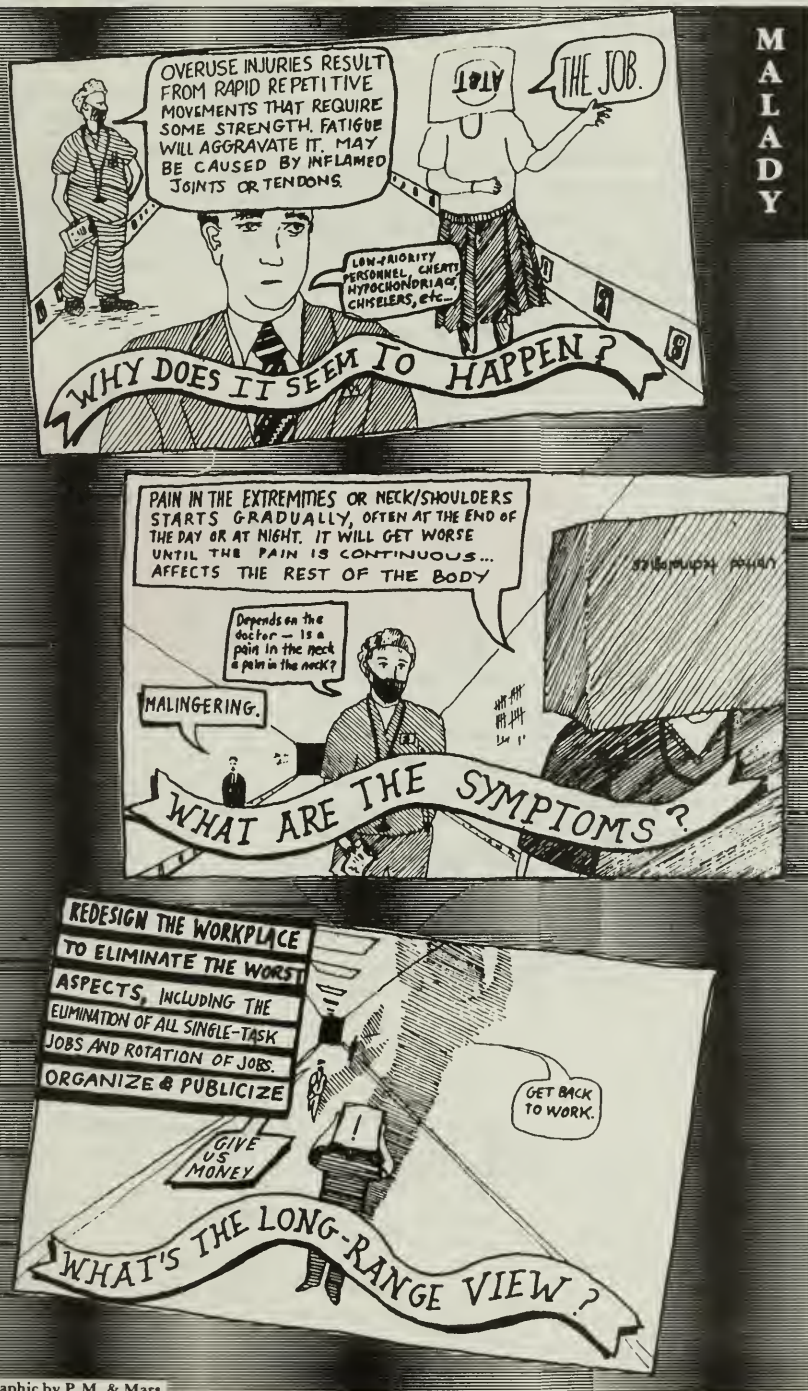 MALADY
OVERUSE INJURIES RESULT
FROM RAPID REPETITIVE
MOVEMENTS THAT REQUIRE
SOME STRENGTH. FATIGUE
WILL AGGRAVATE IT. MAY
BE CAUSED BY INFLAMED
JOINTS OR TENDONS.
AT&T
THE JOB.
LOW-PRIORITY
PERSONNEL, CHEATS
HYPOCHONDRIACS,
CHISELERS, etc...
WHY DOES IT SEEM TO HAPPEN?
PAIN IN THE EXTREMITIES OR NECK/SHOULDERS
STARTS GRADUALLY, OFTEN AT THE END OF
THE DAY OR AT NIGHT. IT WILL GET WORSE
UNTIL THE PAIN IS CONTINUOUS...
AFFECTS THE REST OF THE BODY
United technologies
Depends on the
doctor — Is a
pain in the neck
a pain in the neck?
MALINGERING.
WHAT ARE THE SYMPTOMS?
REDESIGN THE WORKPLACE
TO ELIMINATE THE WORST
ASPECTS, INCLUDING THE
ELIMINATION OF ALL SINGLE-TASK
JOBS AND ROTATION OF JOBS.
ORGANIZE & PUBLICIZE
GET BACK
TO WORK.
!
GIVE
US
MONEY
WHAT'S THE LONG-RANGE VIEW?
aphic by P.M. & Mars